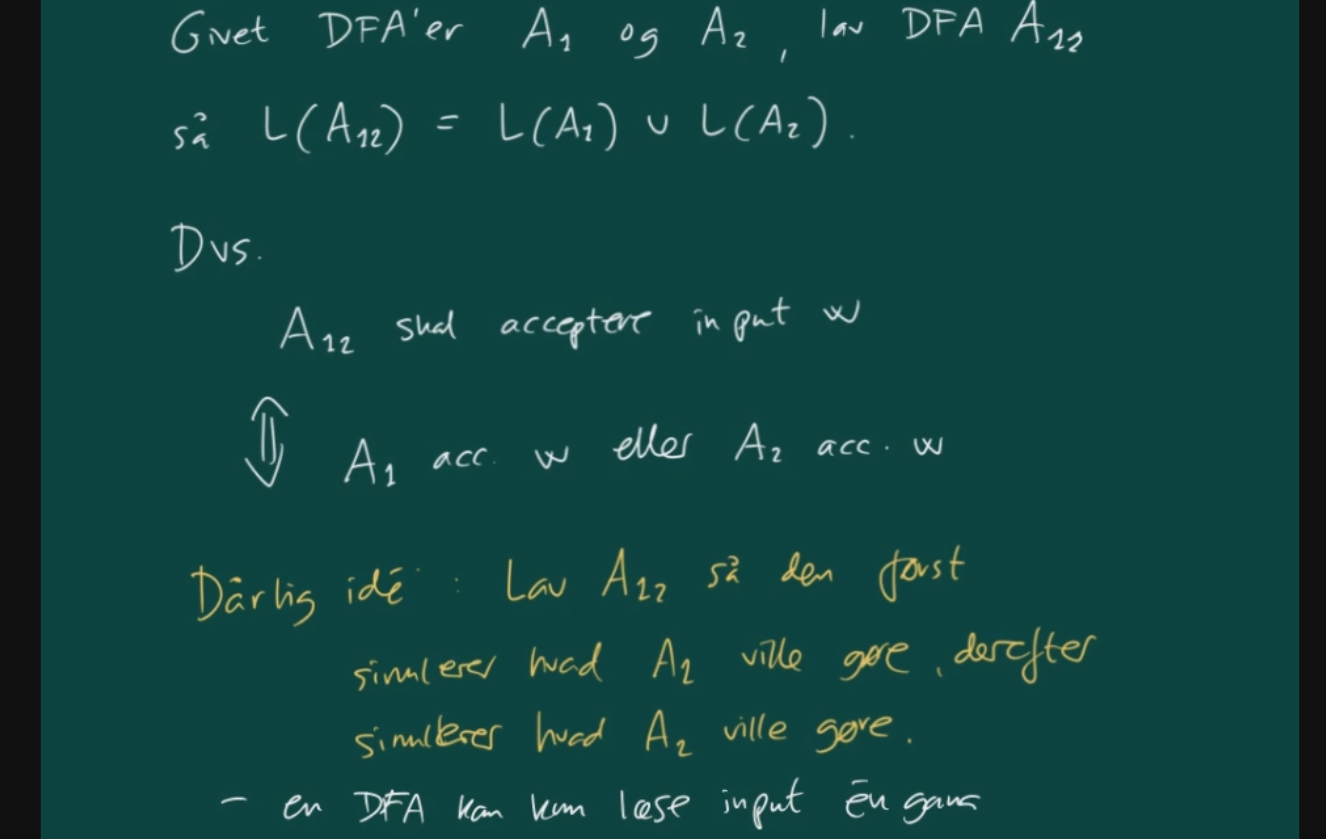 Givet DFA'er A₁ og A₂, lav DFA A₁₂
så L(A₁₂) = L(A₁) ∪ L(A₂).
Dvs.
A₁₂ skal acceptere input w
⇕ A₁ acc. w eller A₂ acc. w
Dårlig idé : Lav A₁₂ så den først
simulerer hvad A₁ ville gøre, derefter
simulerer hvad A₂ ville gøre.
– en DFA kan kun læse input én gang